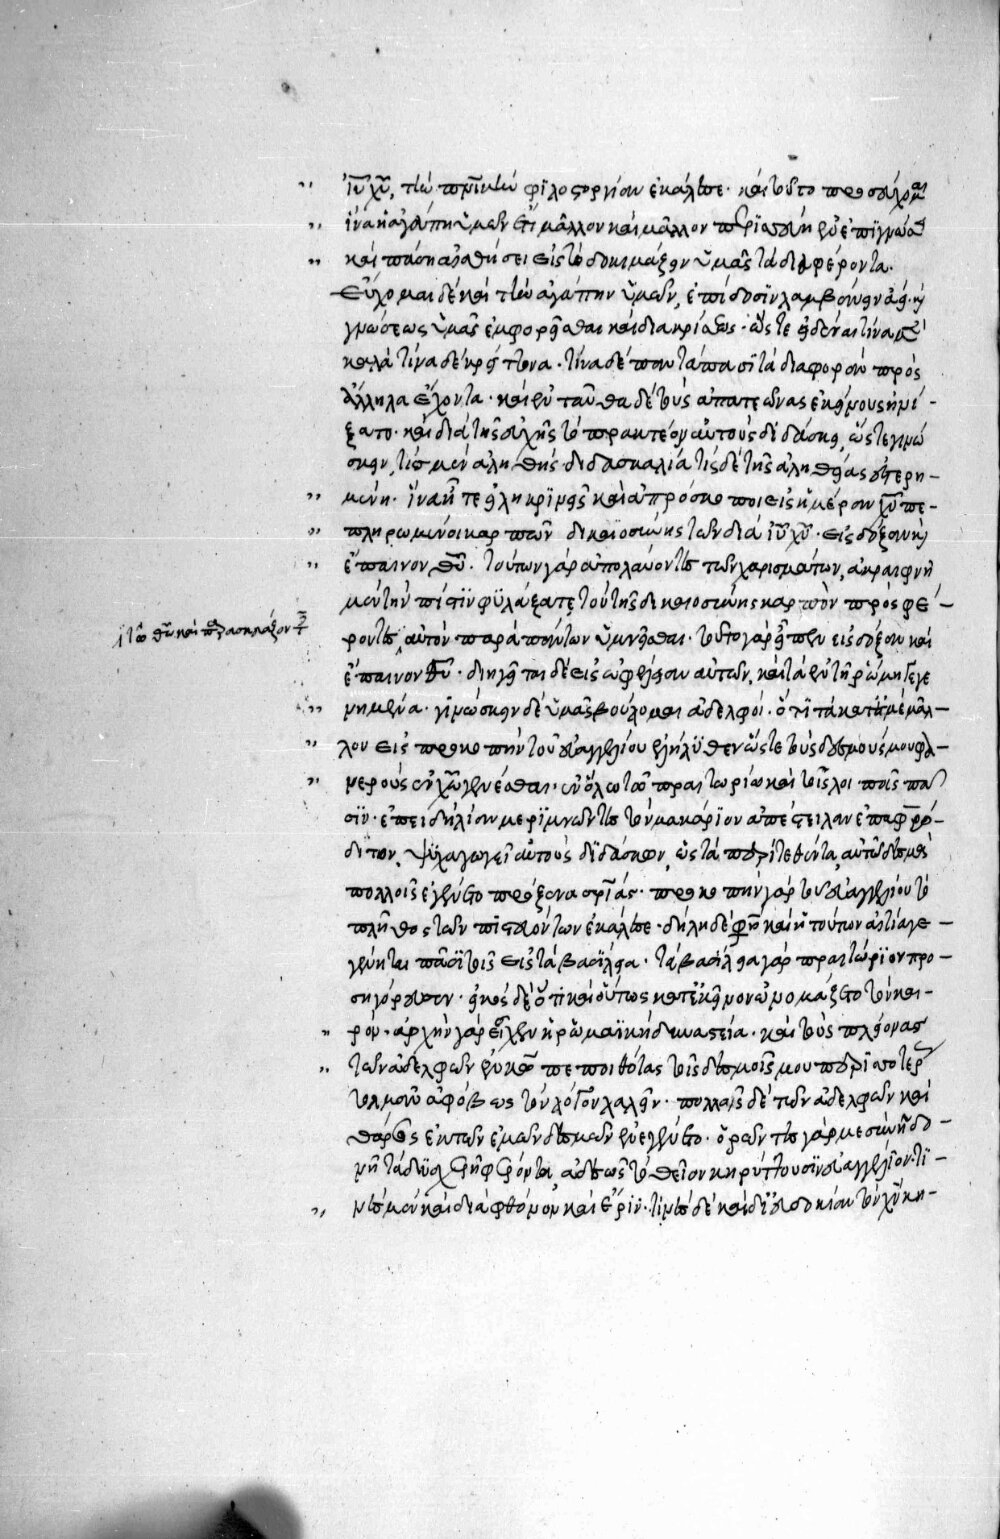 ἰῦ χῦ, τὴν πνικὴν φιλοστοργίαν ἐκάλεσε· καὶ τοῦτο προσεύχομαι
ἵνα ἡ ἀγάπη ὑμῶν ἔτι μᾶλλον καὶ μᾶλλον περισσεύῃ ἐν ἐπιγνώσει
καὶ πάσῃ αἰσθήσει εἰς τὸ δοκιμάζειν ὑμᾶς τὰ διαφέροντα.
εὔχομαι δὲ καὶ τὴν ἀγάπην ὑμῶν, ἐπίδοσιν λαμβάνειν ἀεί· καὶ
γνώσεως ὑμᾶς ἐμφορεῖσθαι καὶ διακρίσεως· ὥστε εἰδέναι τίνα μὲν
καλὰ τίνα δὲ κρείττονα· τίνα δὲ παντάπασι τὰ διαφορὰν πρὸς
ἄλληλα ἔχοντα· καὶ ἐνταῦθα δὲ τοὺς ἀπατεῶνας ἐκείνους ᾐνί-
ξατο· καὶ διὰ τῆς εὐχῆς τὸ πρακτέον αὐτοὺς διδάσκει, ὥστε γινώ
σκειν, τίς μὲν ἀληθὴς διδασκαλία τίς δὲ τῆς ἀληθείας ἐστερη-
μένη· ἵνα ἦτε εἰλικρινεῖς καὶ ἀπρόσκοποι εἰς ἡμέραν χῦ πε-
πληρωμένοι καρπῶν δικαιοσύνης τῶν διὰ ἰῦ χῦ· εἰς δόξαν καὶ
ἔπαινον θῦ. τούτων γὰρ ἀπολαύοντες τῶν χαρισμάτων, ἀκραιφνῆ
μὲν τὴν πίστιν φυλάξατε, τοὺτῆς δικαιοσύνης καρπὸν προσφέ-
ροντες, αὐτὸν παρὰ πάντων ὑμνεῖσθαι· τοῦτο γὰρ εἶπεν εἰς δόξαν καὶ
ἔπαινον θῦ· διηγεῖται δὲ εἰς ὠφέλειαν αὐτῶν, καὶ τὰ ἐν τῇ ῥώμῃ γεγε
νημένα· γινώσκειν δὲ ὑμᾶς βούλομαι ἀδελφοί· ὅτι τὰ κατ' ἐμὲ μᾶλ-
λον εἰς προκοπὴν τοῦ εὐαγγελίου ἐλήλυθεν ὥστε τοὺς δεσμούς μου φα-
νεροὺς ἐν χῶ γενέσθαι· ἐν ὅλω τῶ πραιτωρίω καὶ τοῖς λοιποῖς πᾶ
σιν· ἐπειδὴ λίαν μεριμνῶντες τὸν μακάριον ἀπέστειλαν ἐπαφρό-
διτον, ψυχαγωγεῖ αὐτοὺς διδάσκων, ὡς τὰ περιτεθέντα αὐτῶ δεσμὰ
πολλοῖς ἐγένετο πρόξενα σρίας· προκοπὴν γὰρ τοῦ εὐαγγελίου τὸ
πλῆθος τῶν πιστευόντων ἐκάλεσε· δηλεῖ δέ φησι καὶ ἡ τούτων αἰτία γε
γένηται πᾶσι τοῖς εἰς τὰ βασίλεια· τὰ βασίλεια γὰρ πραιτώριον προ-
σηγόρευσεν· εἰκὸς δὲ ὅτι καὶ οὕτως κατ' ἐκεῖνον ὠνομάζετο τὸν και-
ρόν· ἀρχὴν γὰρ εἶχεν ἡ ῥωμαϊκὴ δυναστεία· καὶ τοὺς πλείονας
τῶν ἀδελφῶν ἐν κῶ πεποιθότας τοῖς δεσμοῖς μου περισσοτέρως
τολμᾶν ἀφόβως τὸν λόγον λαλεῖν· πολλοῖς δὲ τῶν ἀδελφῶν καὶ
θάρσος ἐκ τῶν ἐμῶν δεσμῶν ἐνεγένετο· ὁρῶντες γάρ με σὺν ἡδο-
νῇ τὰ δυσχερῆ φέροντα, ἀδεῶς τὸ θεῖον κηρύττουσιν εὐαγγέλιον· τι-
νὲς μὲν καὶ διὰ φθόνον καὶ ἔριν· τινὲς δὲ καὶ δι' εὐδοκίαν τὸν χν κη-